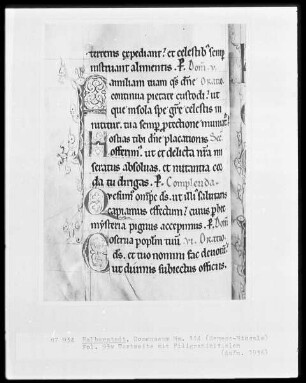 terrenis expediant? et celestib; semp
instruant alimentis. P. Dom. v.
Familiam tuam qs dne Oratio
continua pietate custodi? ut
que in sola spe gre celestis in
nititur. tua semp ptectione muniat~
Hostias tibi dne placationis Sec
offerim'. ut et delicta nra mi
seratus absoluas. et nutantia cor
da tu dirigas. P. Complenda.
Qesum' omps ds. ut illi' salutaris
capiamus effectum? cuius p hec
mysteria pignus accepimus. P. Dom
Conserva poplm tuū vi. Oratio.
ds. et tuo nomini fac deuotū?
ut diuinis subiectus officiis.
Halberstadt, Domschatz Hs.
Fol.
(Aufn.